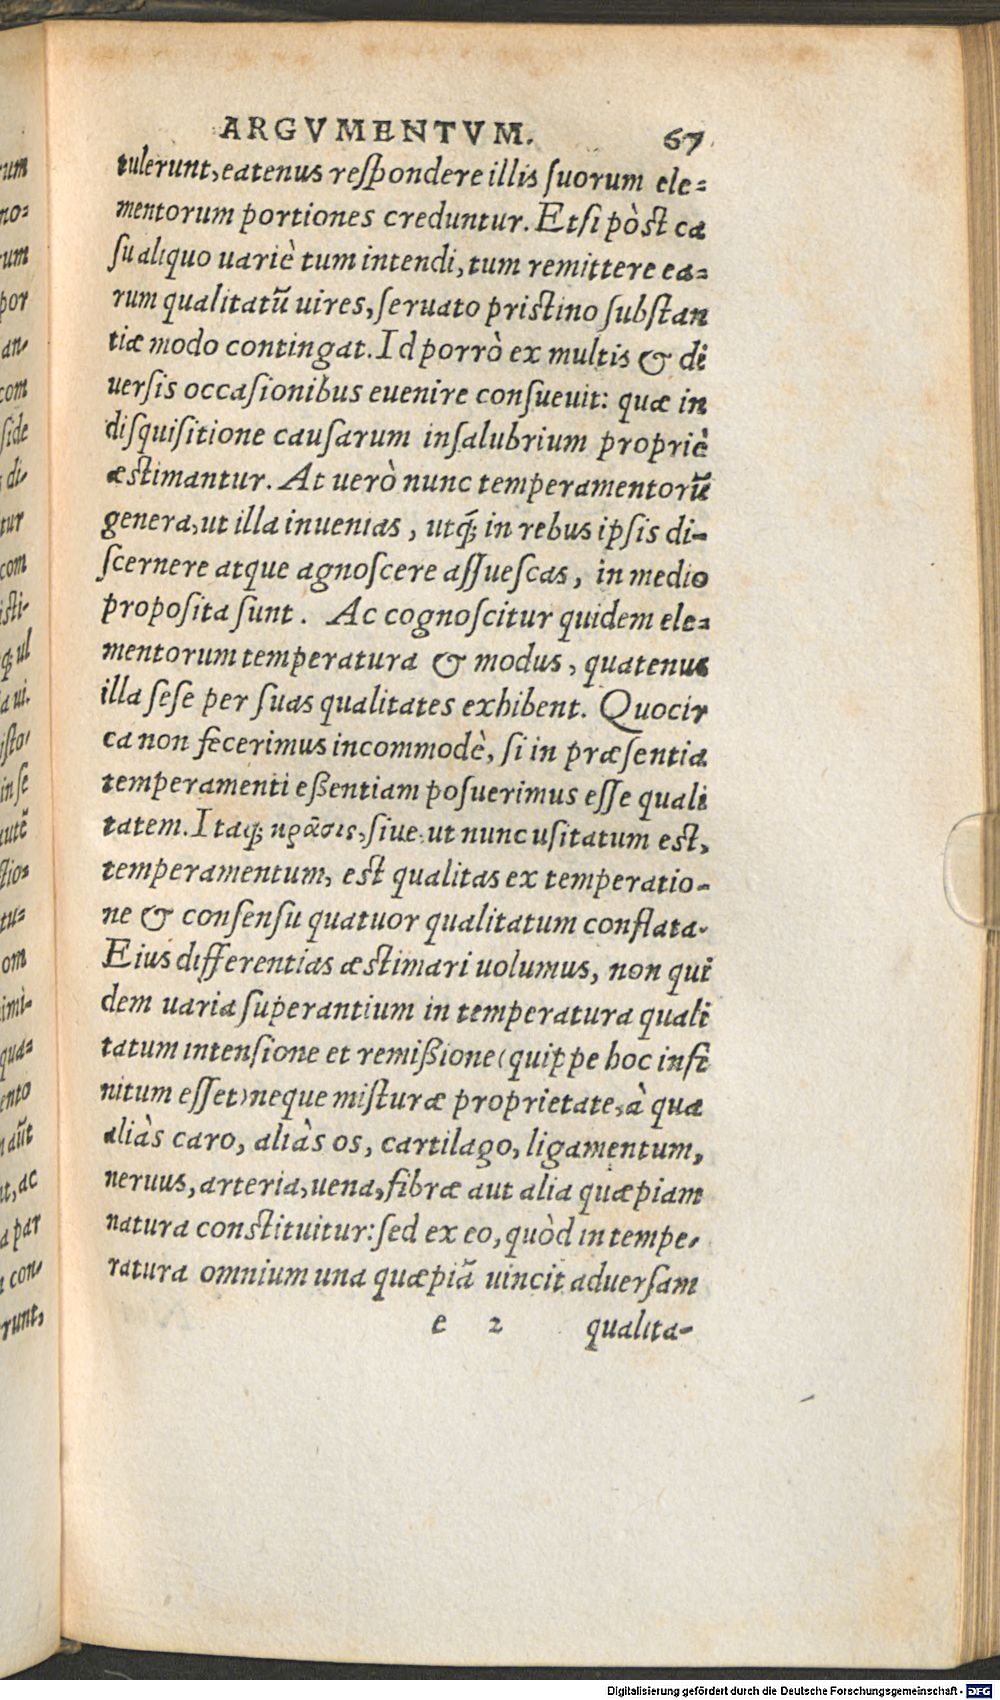 ARGVMENTVM. 67
tulerunt, eatenus respondere illis suorum ele=
mentorum portiones creduntur. Etsi pòst ca
su aliquo uariè tum intendi, tum remittere ea=
rum qualitatũ uires, seruato pristino substan
tiæ modo contingat. Id porrò ex multis & di
uersis occasionibus euenire consueuit: quæ in
disquisitione causarum insalubrium propriè
æstimantur. At uerò nunc temperamentorũ
genera, ut illa inuenias, utq; in rebus ipsis di-
scernere atque agnoscere assuescas, in medio
proposita sunt. Ac cognoscitur quidem ele=
mentorum temperatura & modus, quatenus
illa sese per suas qualitates exhibent. Quocir
ca non fecerimus incommodè, si in præsentia
temperamenti eßentiam posuerimus esse quali
tatem. Itaq; κρᾶσις, siue ut nunc usitatum est,
temperamentum, est qualitas ex temperatio-
ne & consensu quatuor qualitatum conflata.
Eius differentias æstimari uolumus, non qui
dem uaria superantium in temperatura quali
tatum intensione et remißione (quippe hoc infi
nitum esset) neque misturæ proprietate, à qua
aliàs caro, aliàs os, cartilago, ligamentum,
neruus, arteria, uena, fibræ aut alia quæpiam
natura constituitur: sed ex eo, quòd in tempe-
ratura omnium una quæpiã uincit aduersam
e 2 qualita-
rum
no=
um
por
an-
com
side
di-
tur
com
isti-
q; ul
a ui.
isto-
in se
autẽ
stio=
tu=
om
imi-
qua=
ento
aũt
ut, ac
a par
con-
runt,
Digitalisierung gefördert durch die Deutsche Forschungsgemeinschaft - DFG